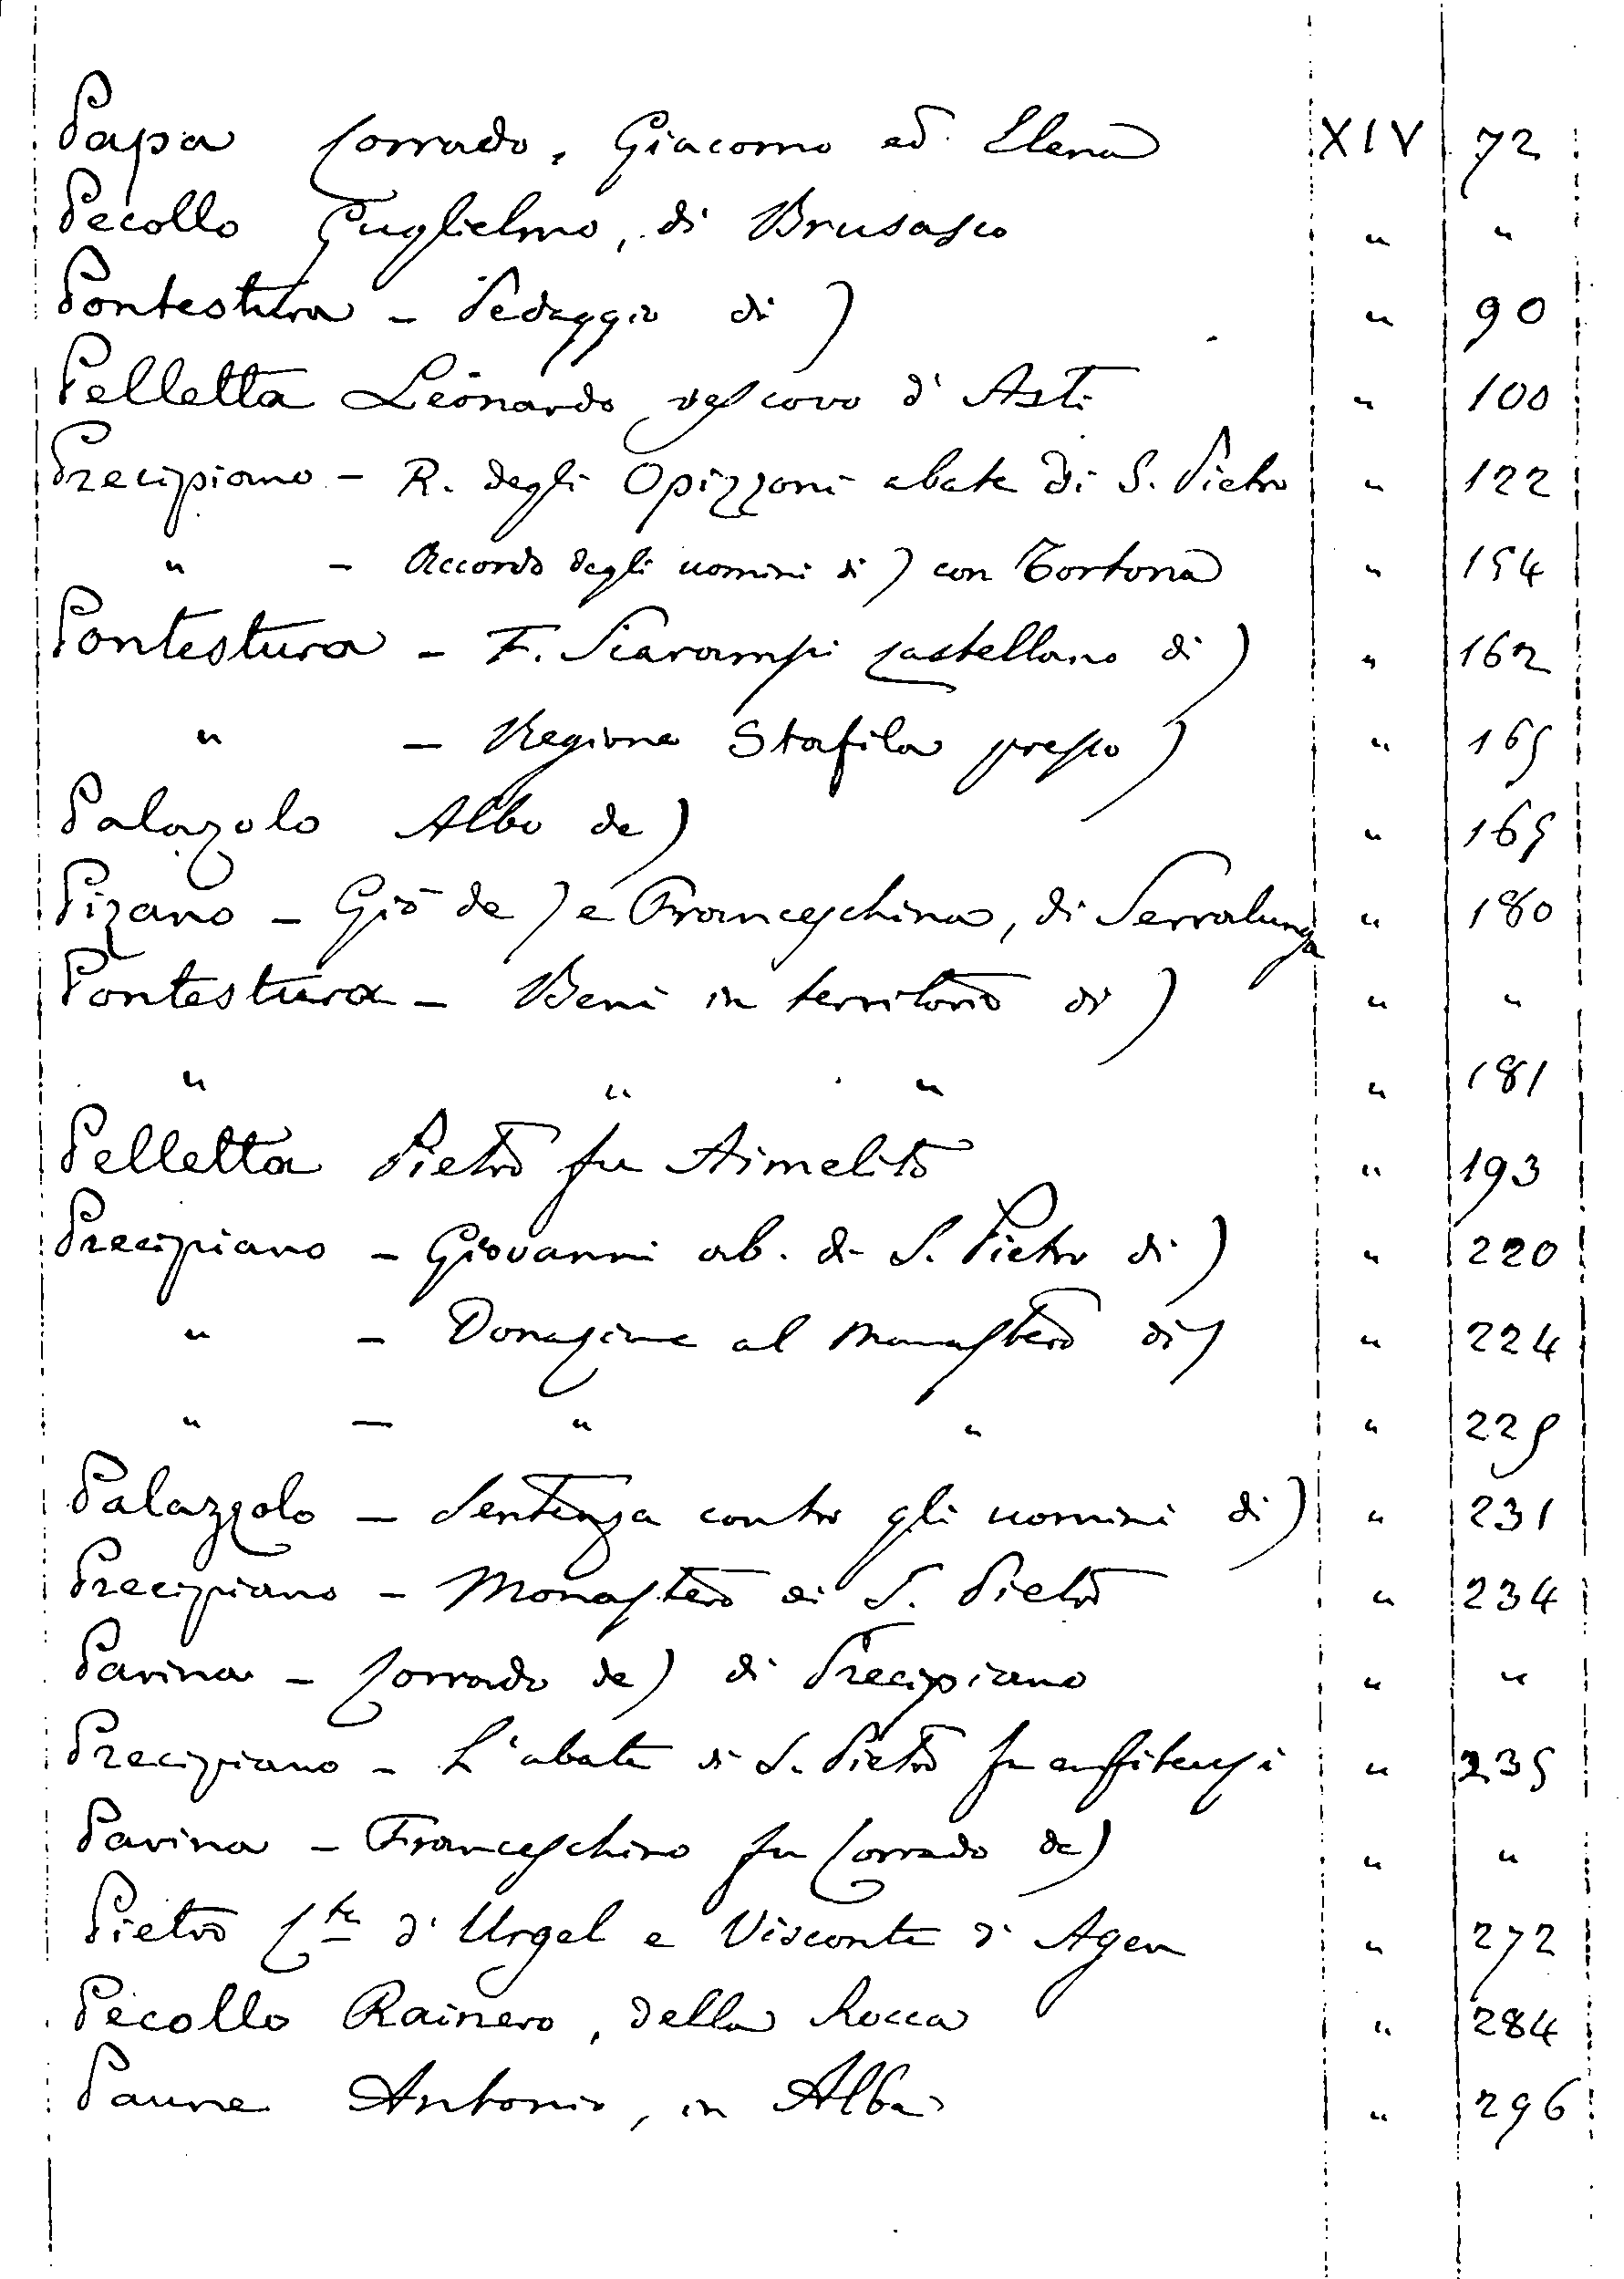 Papa Corrado, Giacomo ed Elena XIV 72
Pecollo Guglielmo, di Brusasco " "
Pontestura - Pedaggio di ) " 90
Pelletta Leonardo vescovo d'Asti " 100
Precipiano - R. degli Opizzoni abate di S. Pietro " 122
" - Accordo degli uomini di ) con Tortona " 154
Pontestura - F. Scarampi castellano di ) " 162
" - Regione Stafila presso ) " 165
Palazolo Albo de ) " 165
Pizano - Gio de ) e Franceschina, di Serralunga " 180
Pontestura - Beni in territorio di ) " "
" " " " 181
Pelletta Pietro fu Aimelito " 193
Precipiano - Giovanni ab. di S. Pietro di ) " 220
" - Donazione al monastero di ) " 224
" - " " " 225
Palazzolo - Sentenza contro gli uomini di ) " 231
Precipiano - Monastero di S. Pietro " 234
Pavina - Corrado de ) di Precipiano " "
Precipiano - L'abate di S. Pietro fu enfiteusi " 235
Pavina - Franceschino fu Corrado de ) " "
Pietro Cte d'Urgel e Visconte d'Agen " 272
Pecollo Rainero, della Rocca " 284
Paune Antonio, in Alba " 296